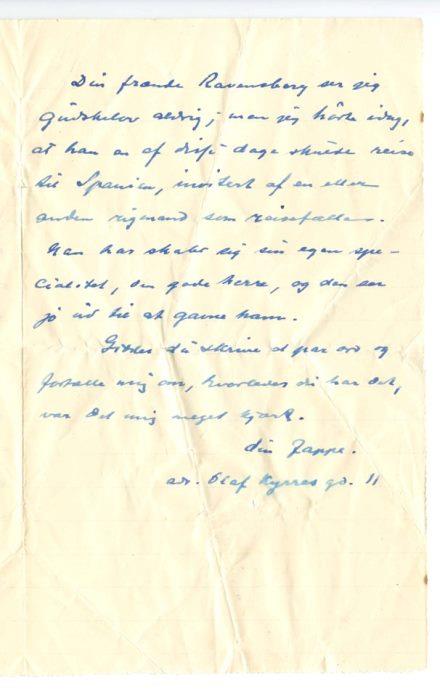 Din frænde Ravensberg ser jeg
Gudskelov aldrig; men jeg hørte idag,
at han en af disse dage skulde reise
til Spanien, inviteret af en eller
anden rigmand som reisefælle.
Han har skabt sig sin egen spe-
cialitet, den gode herre, og den ser
jo ud til at gavne ham.
Gidder du skrive et par ord og
fortælle mig om, hvorledes du har det,
var det mig meget kjært.
din Jappe.
adr. Olaf Kyrres gd. 11